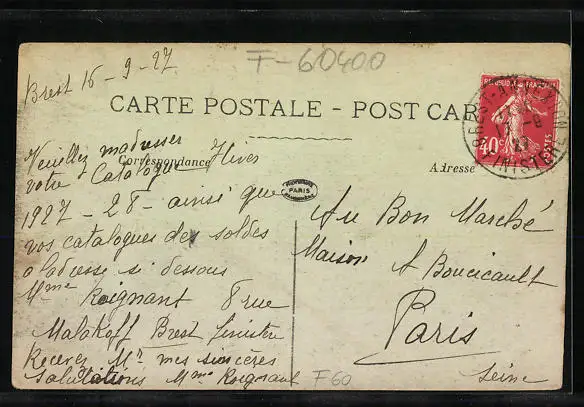 F-60400
Brest 16-9-27
CARTE POSTALE - POST CAR
REPUBLIQUE FRANÇAISE
40c
POSTES
BREST
FINISTERE
Veuillez madresser
Correspondance
votre Catalogue Hiver
Adresse
1927-28- ainsi que
vos catalogues des soldes
a ladresse si dessous
Mme Roignant 8 rue
Malakoff Brest finistere
Recevez Mr mes sinceres
Salutations Mme Roignant
PARIS
Au Bon Marché
Maison A Boucicault
Paris
Seine
F60